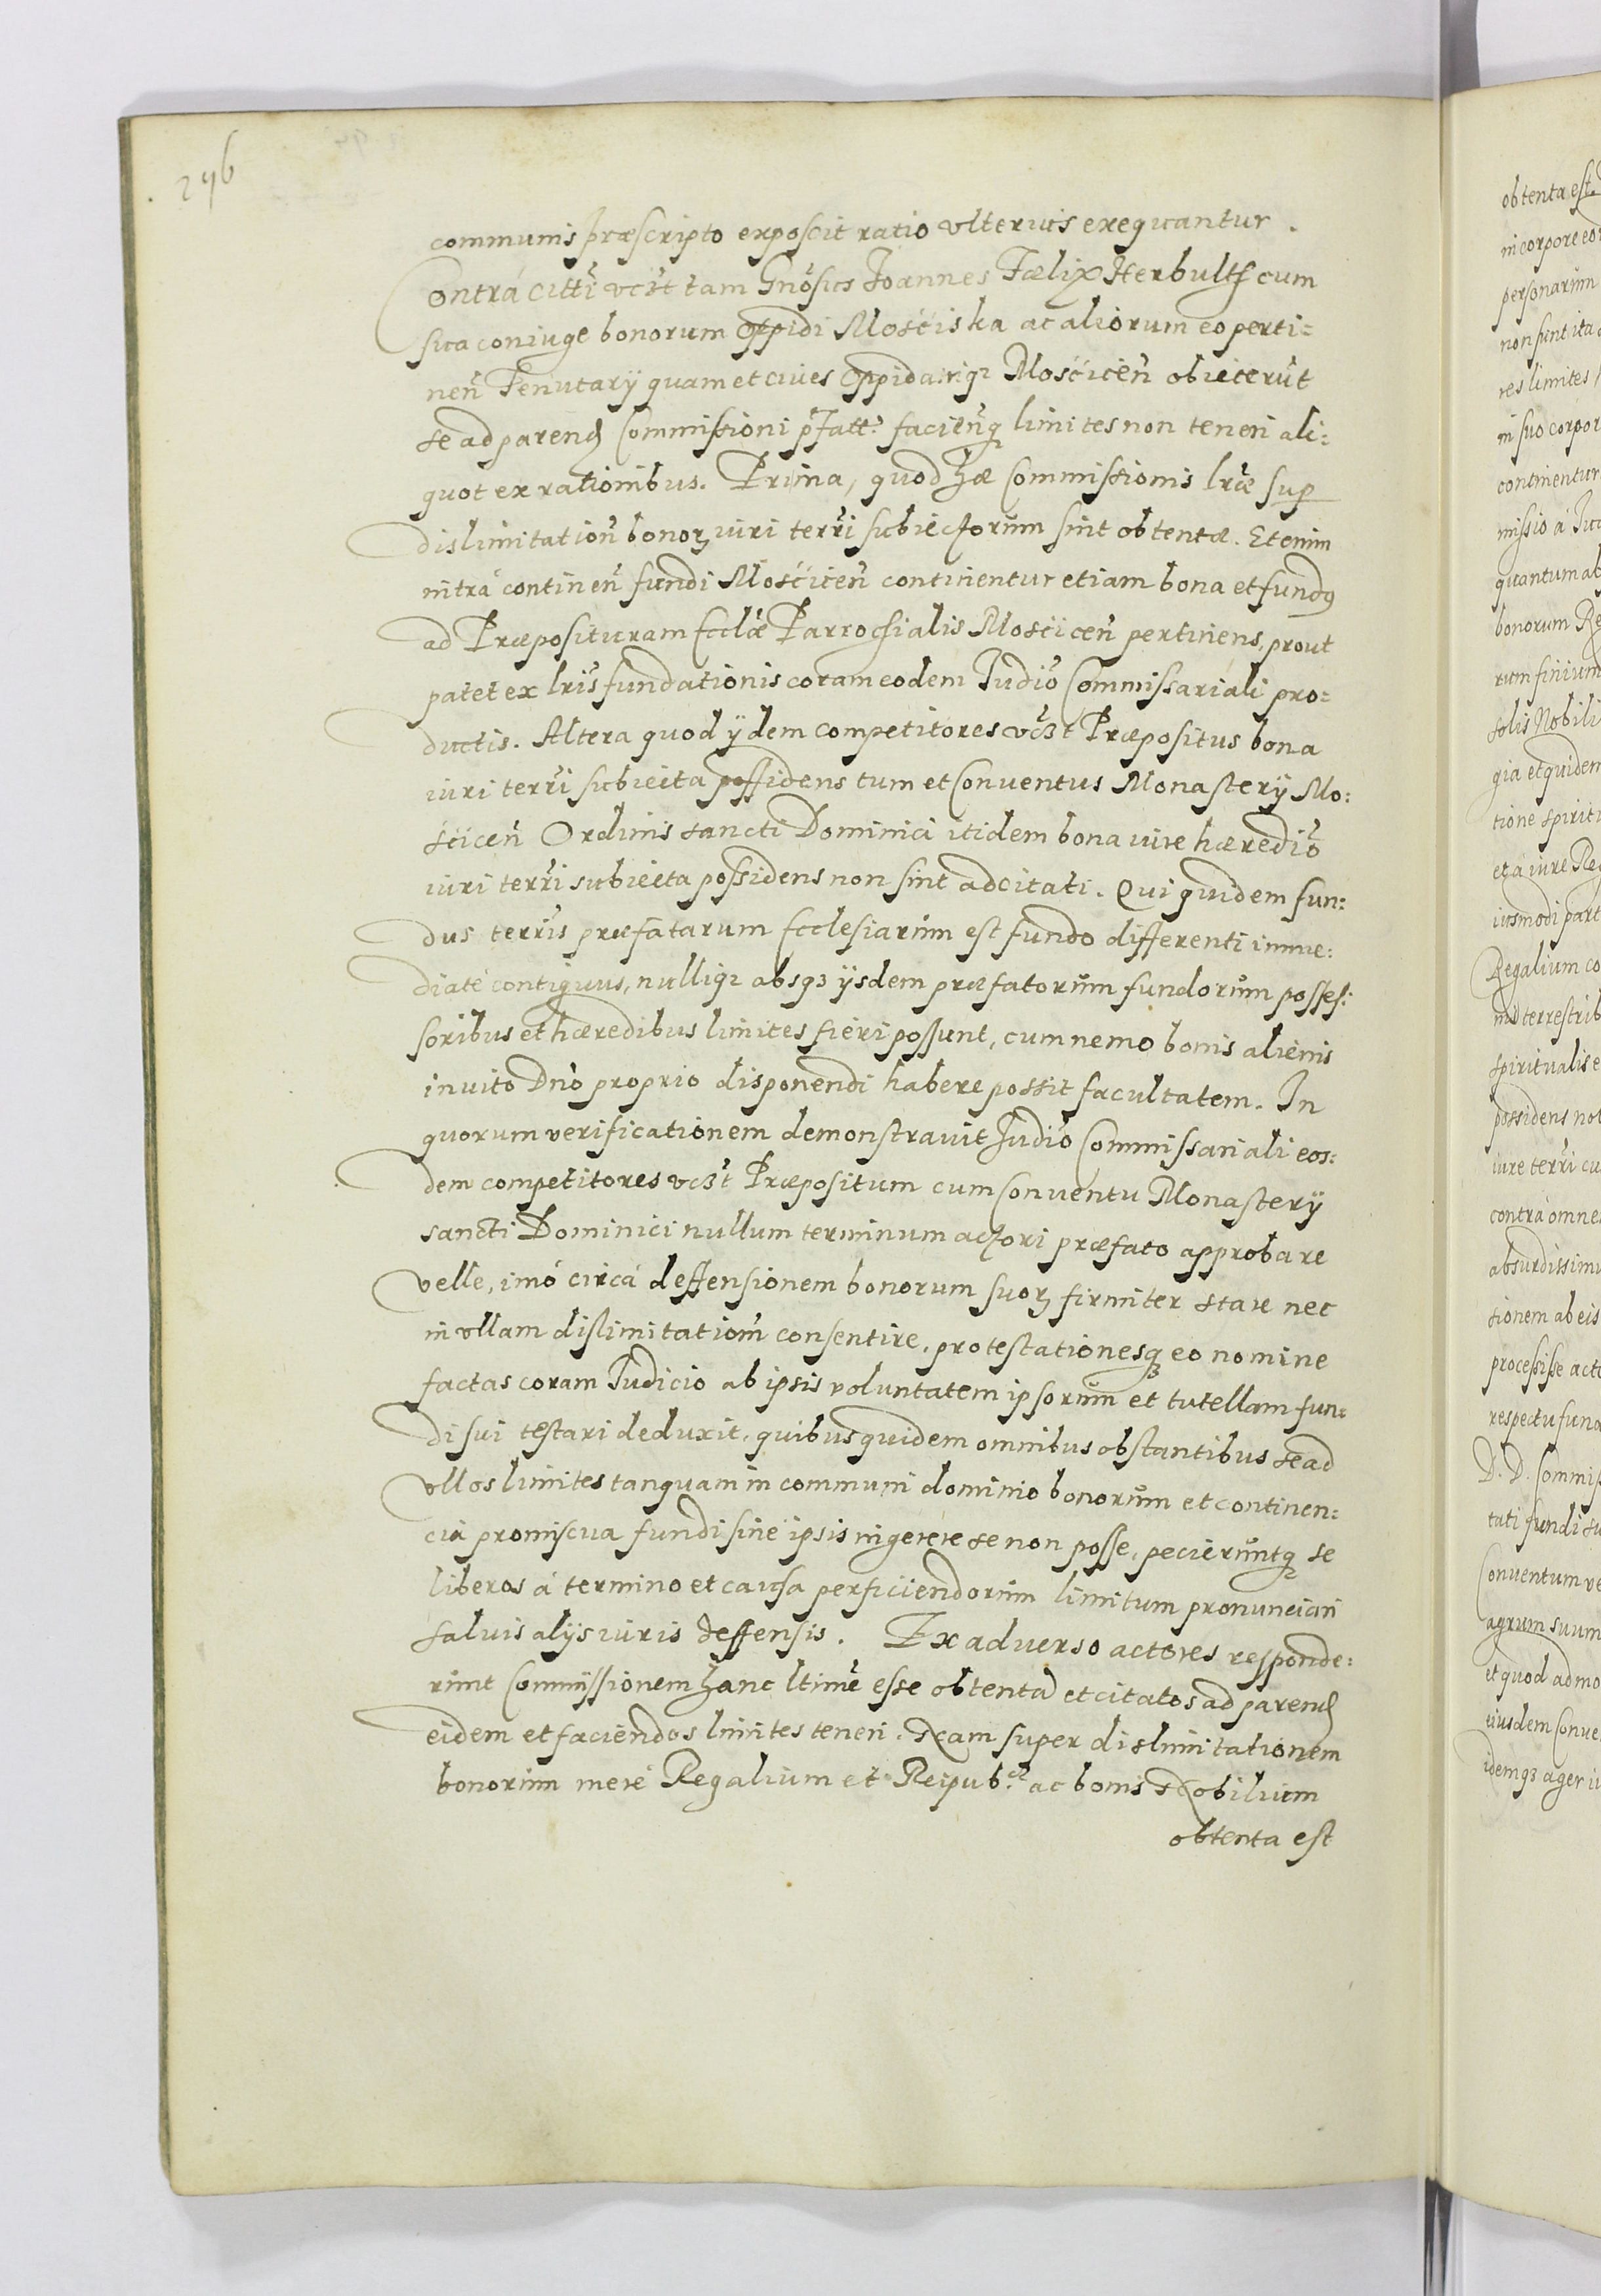 296
communis præscripto exposcit ratio vlterius exequantur.
Contrá citti vcꝫt tam Gnosus Joannes Fælix Herbultħ cum
sua coniuge bonorum Oppidi Mosciska ac aliorum eo perti=
nen̄ Tenutarÿ quam et ciues Oppidaniqꝫ Mosticen̄ obiecerūt
se ad parend Commissioni pfatt. faciendqꝫ limites non teneri ali=
quot ex rationibus. Prima, quod hæ Commissionis lræ sup
dislimitation̄ bonoꝝ iuri terri subiectorum sint obtentæ. Etenim
intrá continen̄ fundi Mosticen̄ continentur etiam bona et fundꝰ
ad Præposituram Ecclæ Parrochialis Mosticen̄ pertinens, prout
patet ex lris fundationis coram eodem Judio Commissariali pro=
ductis. Altera quod ÿdem competitores vcꝫt Præpositus bona
iuri terri subiecta possidens tum et Conuentus Monasterÿ Mo=
sticen̄ Ordinis sancti Dominici itidem bona iure hæredio
iuri terri subiecta possidens non sint adcitati. Qui quidem fun=
dus terris præfatarum Ecclesiarum est fundo differenti imme=
diaté contiguus, nulliqꝫ absqꝫ ÿsdem præfatorum fundorum posses=
soribus et hæredibus limites fieri possunt, cum nemo bonis alienis
inuito Dno proprio disponendi habere possit facultatem. In
quorum verificationem demonstrauit Judio Commissariali eos=
dem competitores vcꝫt Præpositum cum Conuentu Monasterÿ
sancti Dominici nullum terminum actori præfato approbare
velle, imó circá deffensionem bonorum suoꝝ firmiter stare nec
in vllam dislimitatiom̄ consentire, protestationesqꝫ eo nomine
factas coram Judicio ab ipsis voluntatem ipsorum et tutellam fun=
di sui testari deduxit, quibus quidem omnibus obstantibus se ad
vllos limites tanquam in communi dominio bonorum et continen=
cia promiscua fundi sine ipsis ingerere se non posse, pecieruntqꝫ se
liberos á termino et causa perficiendorum limitum pronunciari
saluis alÿs iuris deffensis. Ex aduerso actores responde=
runt Commissionem hanc ltime esse obtentā et citatos ad parend
eidem et faciendos limites teneri. Nam super dislimitationem
bonorum meré Regalium et Reipub.cæ ac bonis Nobilium
obtenta est
obtenta est.
in corpore eor
personarum
non sint ita
res limites
in suo corpor
continentur
missio á Iu
quantum ab
bonorum Re
rum finium
solis Nobili
gia et quidem
tione spirit
et á iure Reg
iusmodi part
Regalium co
nis terrestrib
spiritualis e
possidens not
iure terri cu
contrá omne
absurdissimu
tionem ab eis
processisse acto
respectu fund
D. D. Commis
tati fundi su
Conuentum ve
agrum suum
et quod ad mo
eiusdem Conue
idemqꝫ ager iu